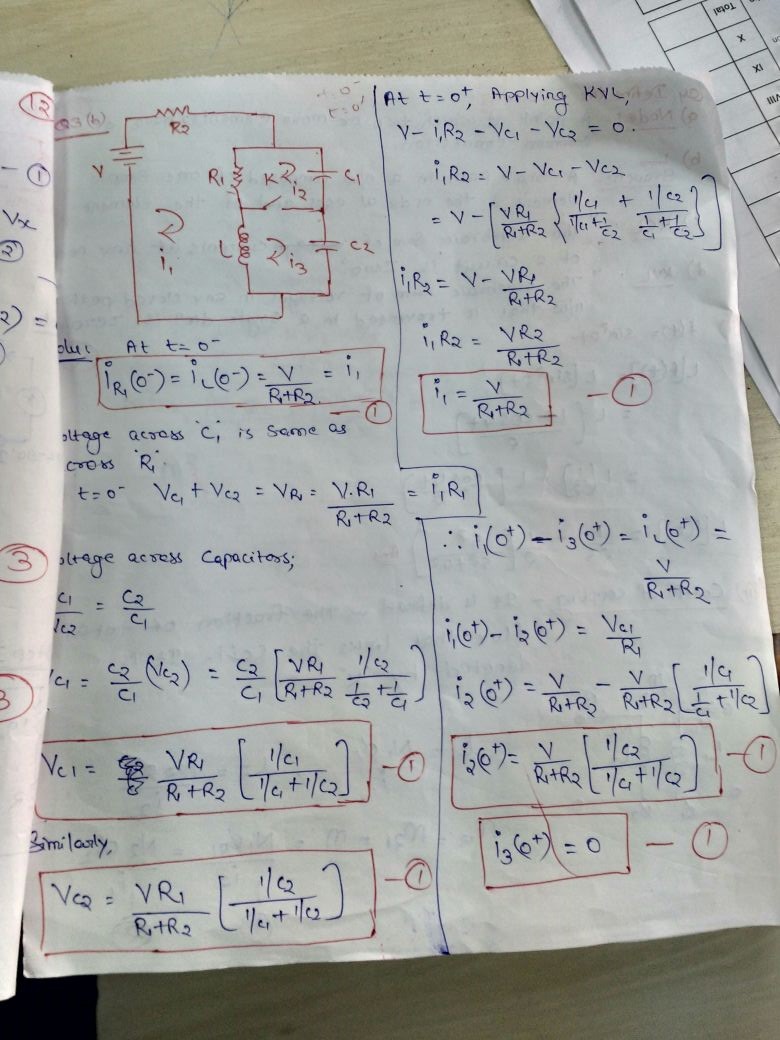 12
Q3(b)
R2
V
R1
K
i2
C1
L
i3
C2
i1
t=0-
t=0+
- ①
Vx
②
2) =
③
3
oln: At t=0-
iR1(0-) = iL(0-) = V/(R1+R2) = i1
- ①
oltage across 'C1' is same as
cross 'R1'.
t=0- VC1 + VC2 = VR1 = V.R1/(R1+R2) = i1R1
oltage across Capacitors;
C1/VC2 = C2/C1
VC1 = C2/C1 (VC2) = C2/C1 [VR1/(R1+R2) (1/C2)/(1/C2 + 1/C1)]
VC1 = VR1/(R1+R2) [(1/C1)/(1/C1 + 1/C2)] - ①
Similarly,
VC2 = VR1/(R1+R2) [(1/C2)/(1/C1 + 1/C2)] - ①
At t=0+, Applying KVL,
V - i1R2 - VC1 - VC2 = 0.
i1R2 = V - VC1 - VC2
= V - [VR1/(R1+R2) {(1/C1)/(1/C1 + 1/C2) + (1/C2)/(1/C1 + 1/C2)}]
i1R2 = V - VR1/(R1+R2)
i1R2 = VR2/(R1+R2)
i1 = V/(R1+R2) - ①
∴ i1(0+) - i3(0+) = iL(0+) =
V/(R1+R2)
i1(0+) - i2(0+) = VC1/R1
i2(0+) = V/(R1+R2) - V/(R1+R2) [(1/C1)/(1/C1 + 1/C2)]
i2(0+) = V/(R1+R2) [(1/C2)/(1/C1 + 1/C2)] - ①
i3(0+) = 0 - ①
Total
X
IX
VIII